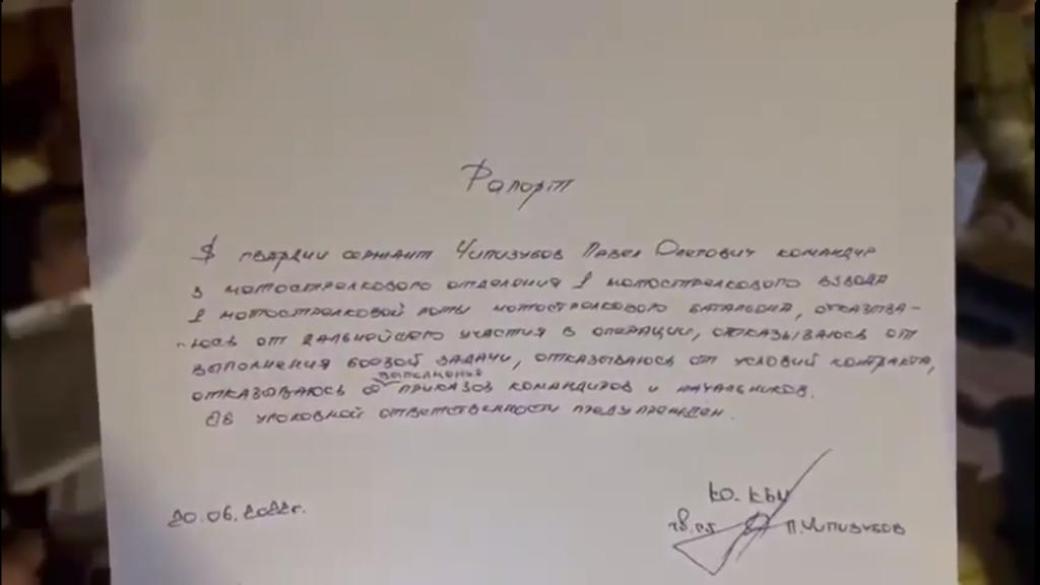 Рапорт
Я гвардии сержант Чипизубов Павел Олегович командир
3 мотострелкового отделения 1 мотострелкового взвода
1 мотострелковой роты мотострелкового батальона, отказыва-
юсь от дальнейшего участия в операции, отказываюсь от
выполнения боевой задачи, отказываюсь от условий контракта,
выполнения
отказываюсь от приказов командиров и начальников.
Об уголовной ответственности предупрежден.
20.06.2022г.
П. Чипизубов